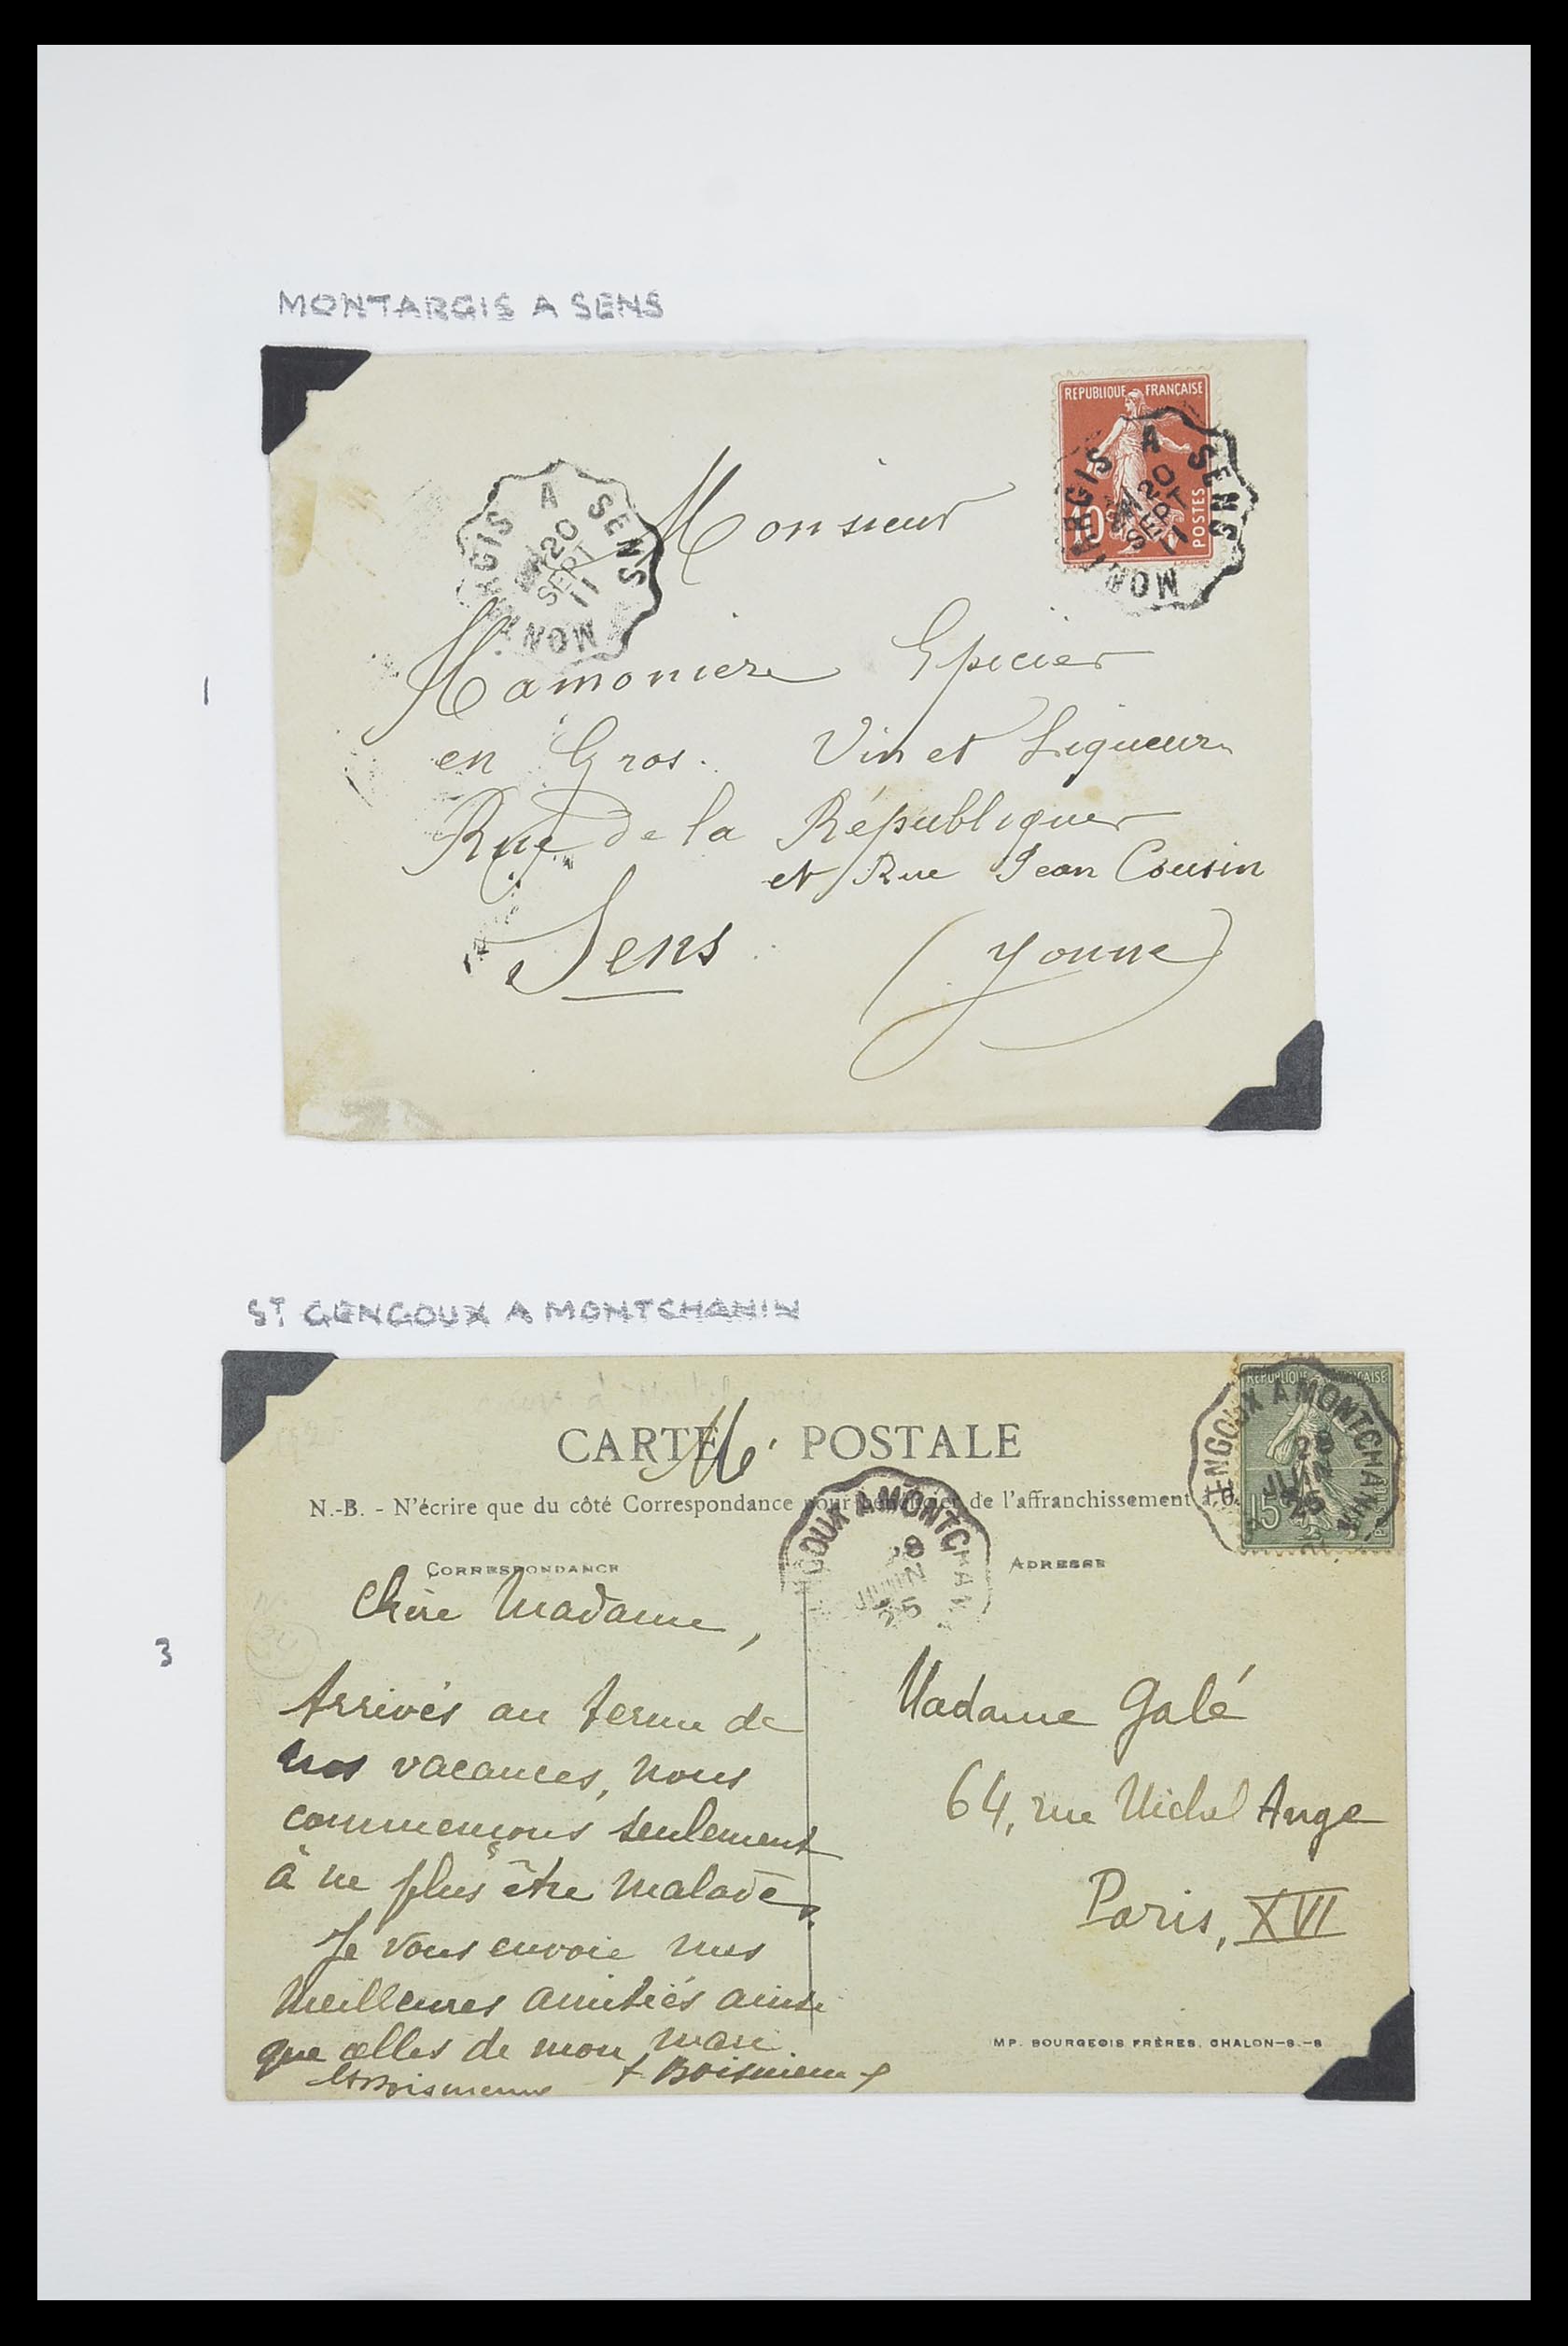 MONTARGIS A SENS
REPUBLIQUE FRANÇAISE
10
POSTES
MONTARGIS A SENS
20
SEPT
11
MONTARGIS A SENS
20
SEPT
11
Monsieur
Hamoniere Epicier
en Gros. Vin et Liqueur
1
Rue de la République
et Rue Jean Cousin
Sens (Yonne)
ST GENGOUX A MONTCHANIN
REPUBLIQUE FRANÇAISE
15
GENGOUX A MONTCHANIN
28
JUIN
25
CARTE POSTALE
N.-B. - N'écrire que du côté Correspondance pour bénéficier de l'affranchissement à 0.
GOUX A MONTCHAN
28
JUIN
25
CORRESPONDANCE
ADRESSE
Chère Madame,
3
Arrivés au terme de
nos vacances, nous
commençons seulement
à ne plus être malades.
Je vous envoie mes
meilleures amitiés ainsi
que celles de mon mari
Madame Galé
64, rue Michel Ange
Paris, XVI
MP. BOURGEOIS FRÈRES. CHALON-S.-S